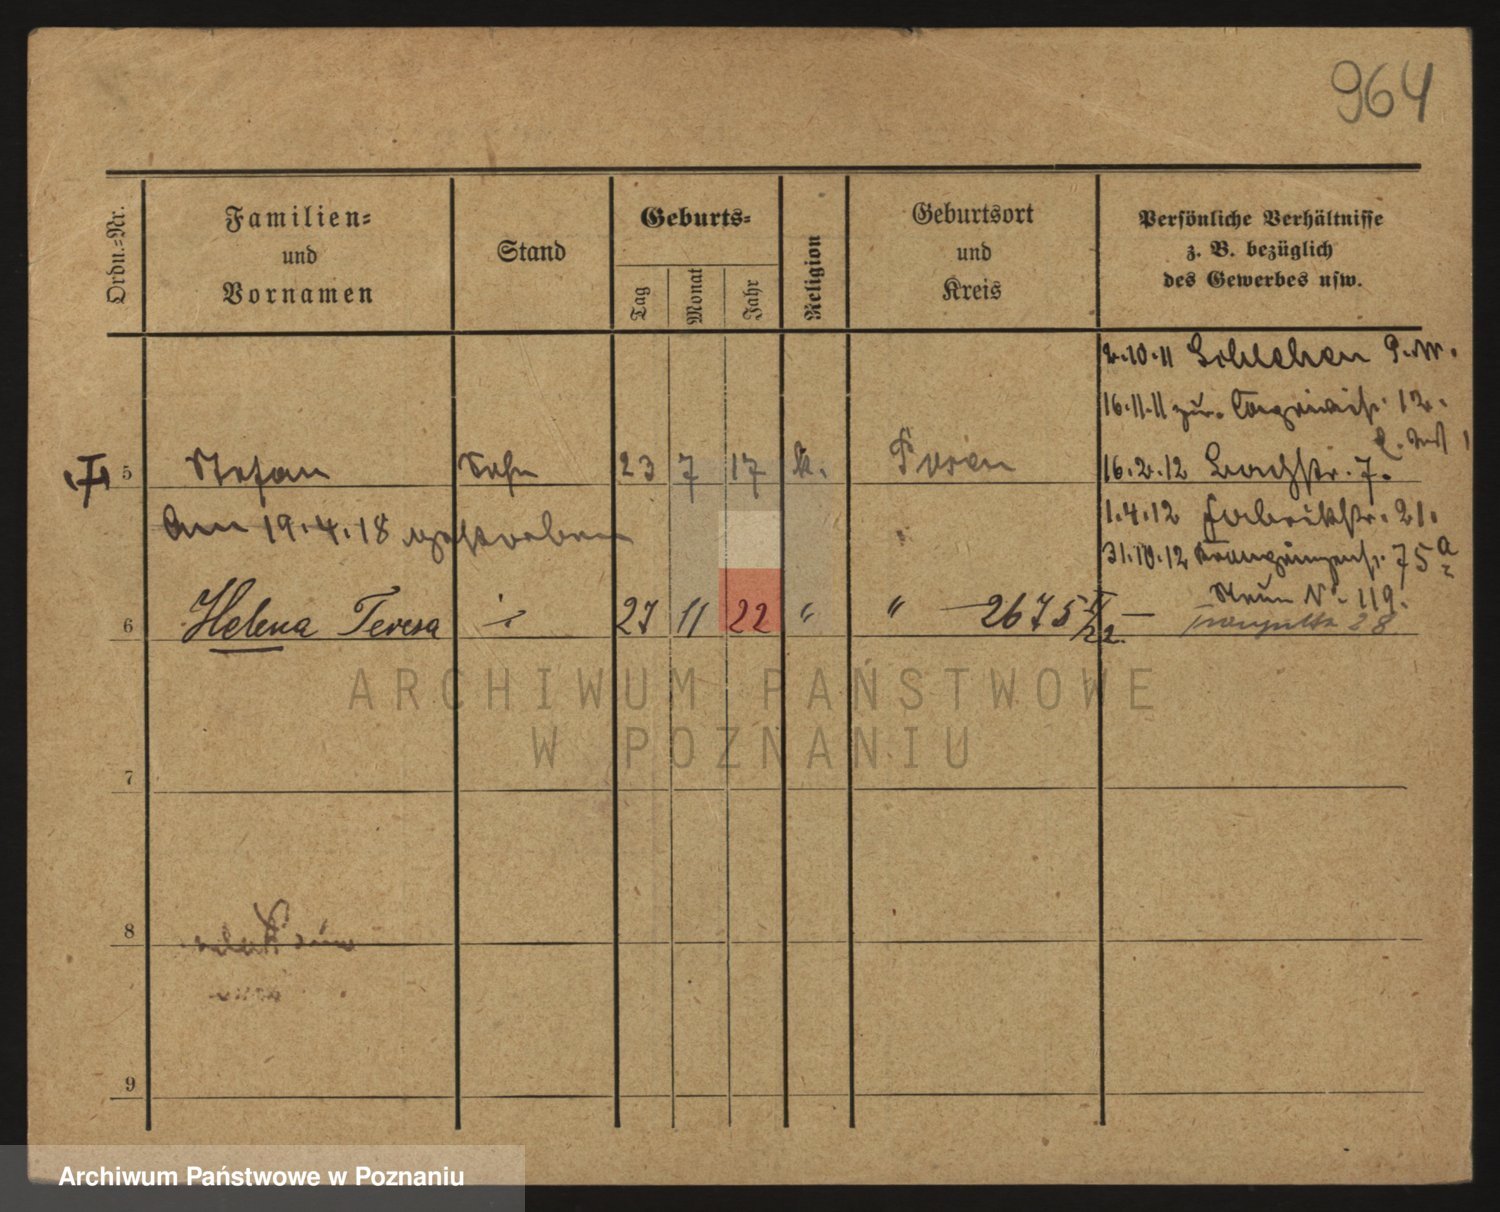 964
Ordn.-Nr.
Familien-
und
Vornamen
Stand
Geburts-
Tag
Monat
Jahr
Religion
Geburtsort
und
Kreis
Persönliche Verhältnisse
z. B. bezüglich
des Gewerbes usw.
2.10.11 P.W.
16.11.11 zur. 12.
5 Stefan Sohn 23 7 17 k. Posen
16.2.12 Bachstr. 7.
am 19.4.18 gestorben
1.4.12 Fabrikstr. 21.
31.10.12 Kronprinzenst. 75a
N. 119.
6 Helena Teresa 27 11 22 " " 2675 V/22
28
ARCHIWUM PAŃSTWOWE
W POZNANIU
7
8
9
Archiwum Państwowe w Poznaniu